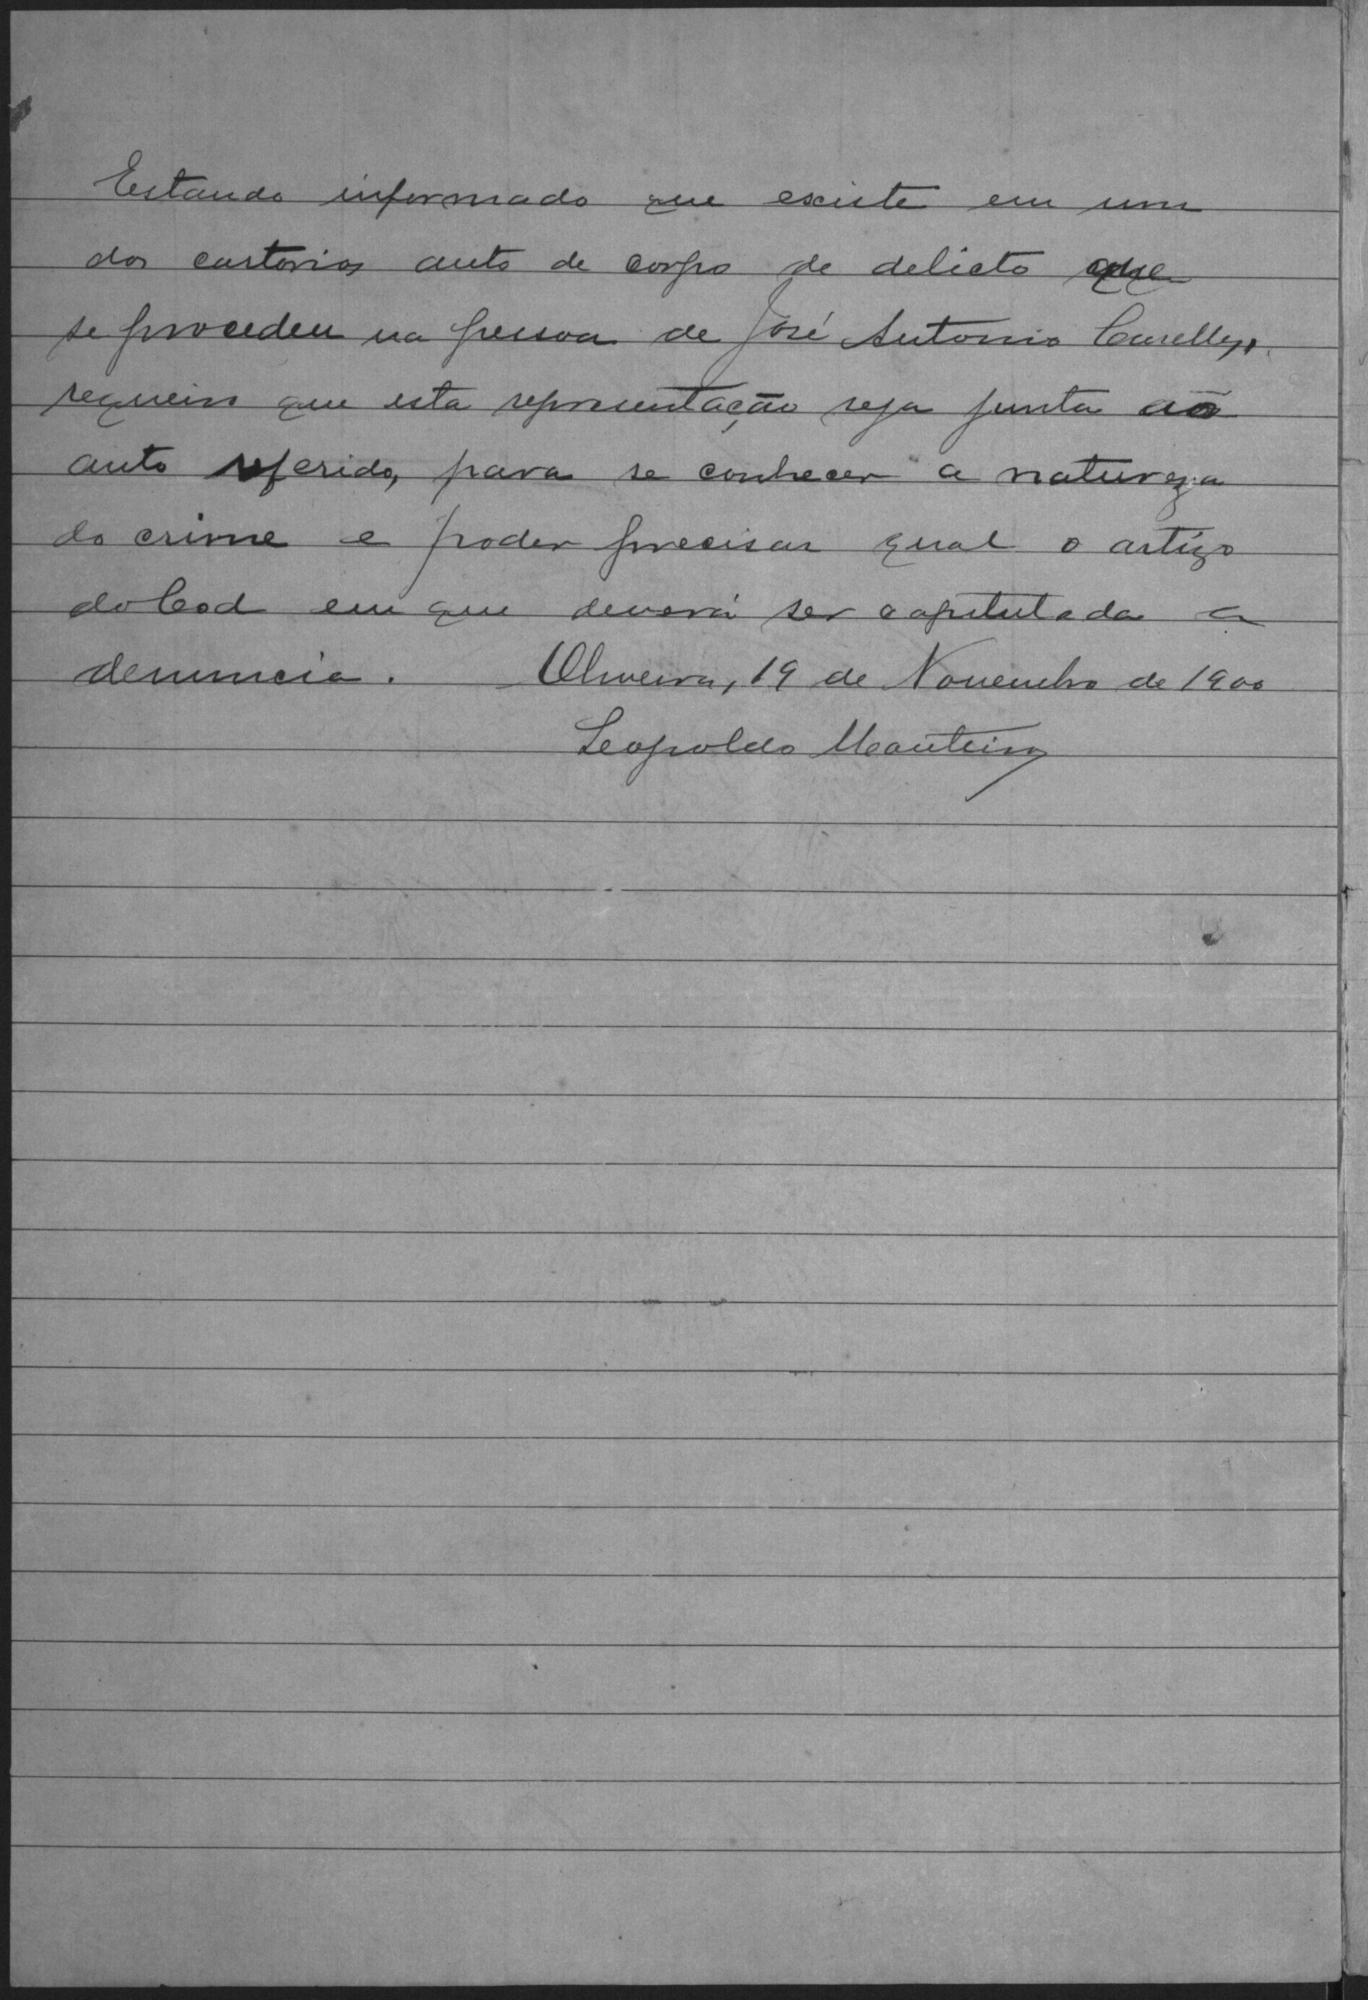 Estando informado que existe em um
dos cartorios auto de corpo de delicto que
se procedeu na pessoa de José Antonio
requeiro que esta representação seja junta ao
auto referido, para se conhecer a natureza
do crime e poder precisar qual o artigo
do Cod em que deverá ser capitulada a
denuncia. Oliveira, 19 de Novembro de 1900
Leopoldo Monteiro